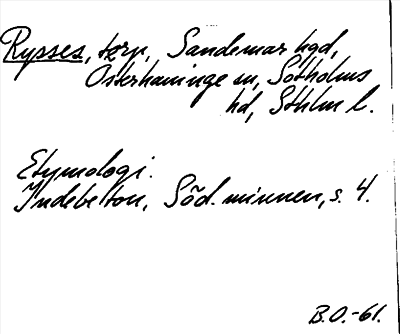 Rysses, torp, Sandemar hgd,
Österhaninge sn, Sotholms
hd, Sthlm l.
Etymologi.
Indebetou, Söd. minnen, s. 4.
B.O.-61.